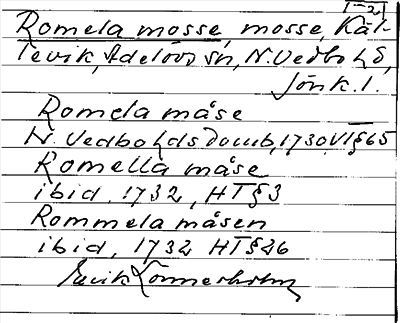 I-21
Romela mosse, mosse, Käl-
levik, Adelövs sn, N. Vedbo hd,
Jönk. l.
Romela måse
N. Vedbo hds domb, 1730 VT§65
Romella måse
ibid. 1732, HT§3
Rommela måsen
ibid. 1732 HT§26